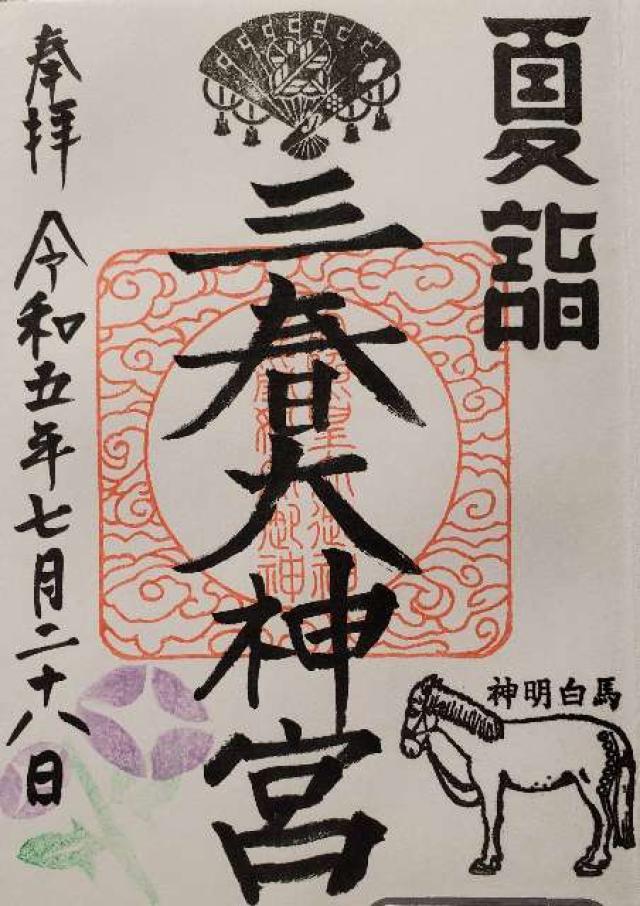 夏詣
三春大神宮
奉拝 令和五年七月二十八日
神明白馬